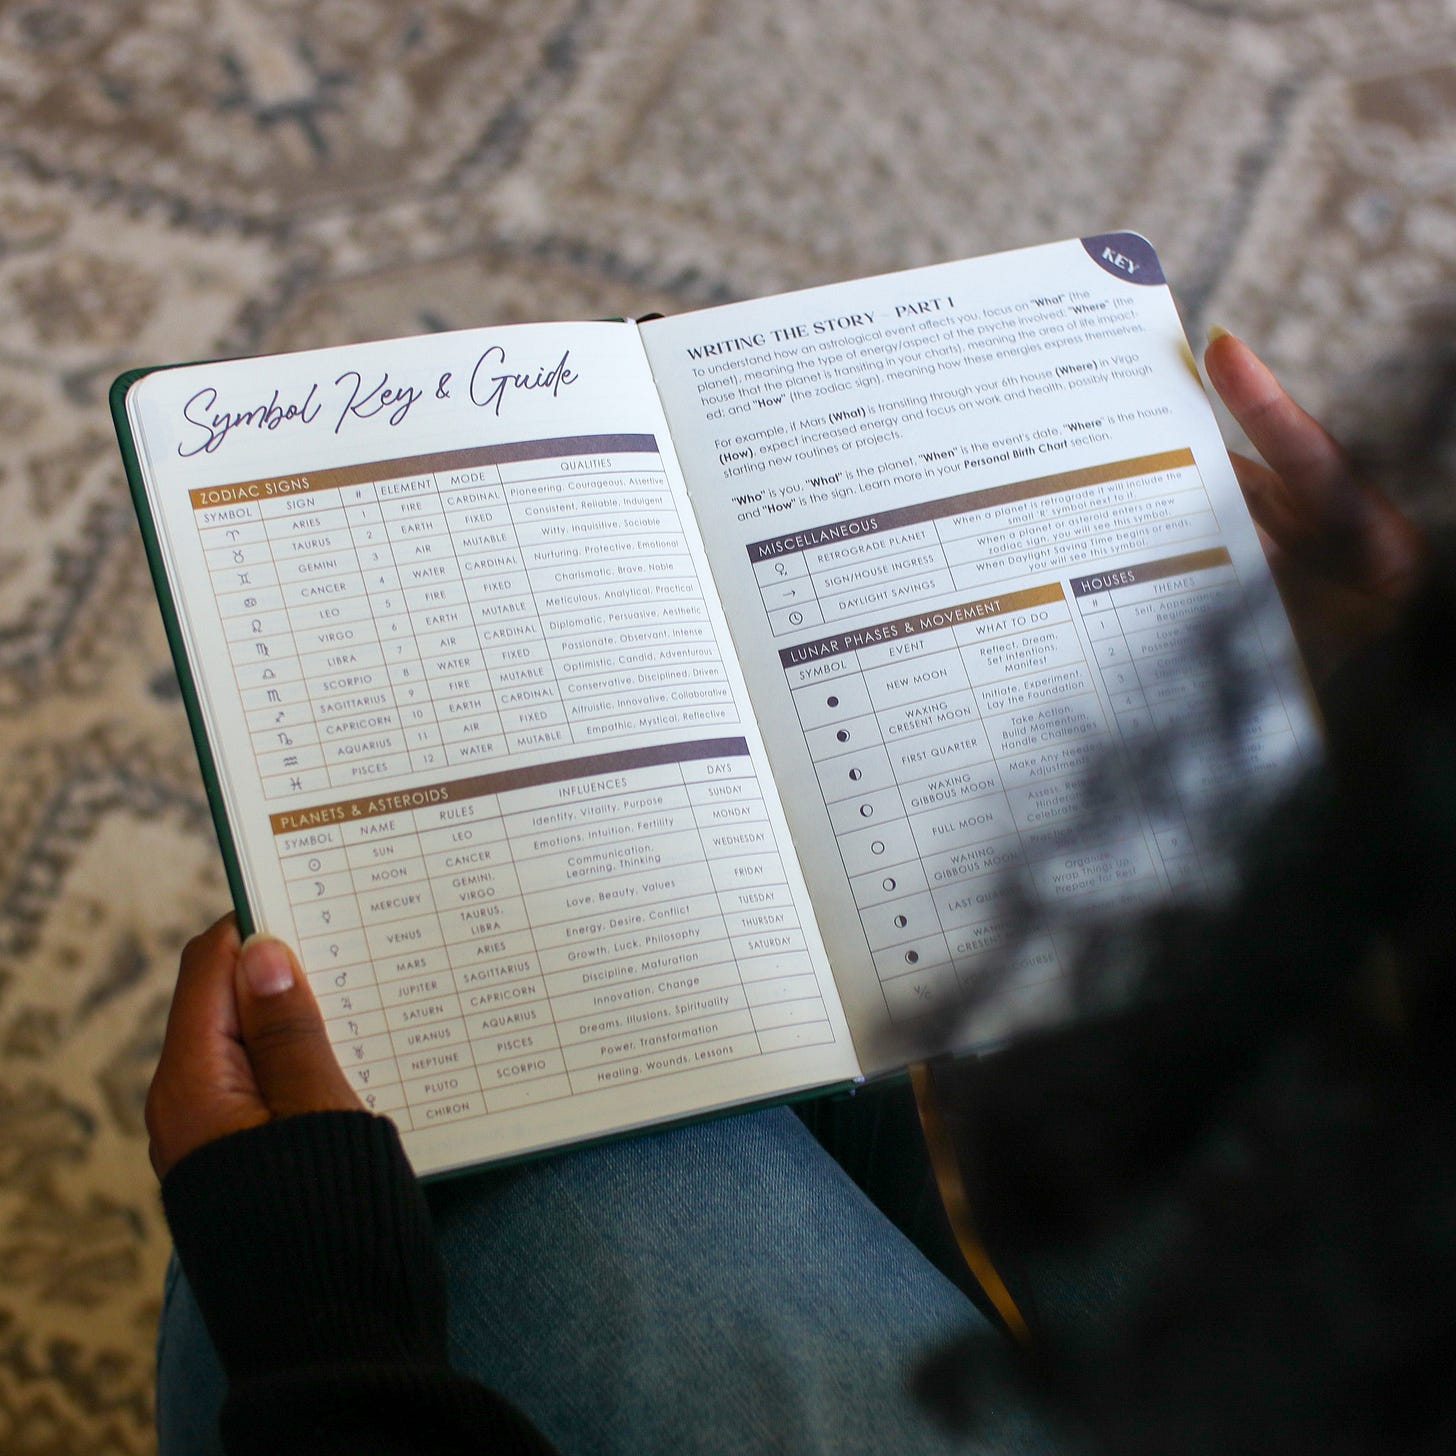 Symbol Key & Guide
ZODIAC SIGNS
SYMBOL SIGN # ELEMENT MODE QUALITIES
♈ ARIES 1 FIRE CARDINAL Pioneering, Courageous, Assertive
♉ TAURUS 2 EARTH FIXED Consistent, Reliable, Indulgent
♊ GEMINI 3 AIR MUTABLE Witty, Inquisitive, Sociable
♋ CANCER 4 WATER CARDINAL Nurturing, Protective, Emotional
♌ LEO 5 FIRE FIXED Charismatic, Brave, Noble
♍ VIRGO 6 EARTH MUTABLE Meticulous, Analytical, Practical
♎ LIBRA 7 AIR CARDINAL Diplomatic, Persuasive, Aesthetic
♏ SCORPIO 8 WATER FIXED Passionate, Observant, Intense
♐ SAGITTARIUS 9 FIRE MUTABLE Optimistic, Candid, Adventurous
♑ CAPRICORN 10 EARTH CARDINAL Conservative, Disciplined, Driven
♒ AQUARIUS 11 AIR FIXED Altruistic, Innovative, Collaborative
♓ PISCES 12 WATER MUTABLE Empathic, Mystical, Reflective
PLANETS & ASTEROIDS
SYMBOL NAME RULES INFLUENCES DAYS
☉ SUN LEO Identity, Vitality, Purpose SUNDAY
☽ MOON CANCER Emotions, Intuition, Fertility MONDAY
☿ MERCURY GEMINI, VIRGO Communication, Learning, Thinking WEDNESDAY
♀ VENUS TAURUS, LIBRA Love, Beauty, Values FRIDAY
♂ MARS ARIES Energy, Desire, Conflict TUESDAY
♃ JUPITER SAGITTARIUS Growth, Luck, Philosophy THURSDAY
♄ SATURN CAPRICORN Discipline, Maturation SATURDAY
♅ URANUS AQUARIUS Innovation, Change
♆ NEPTUNE PISCES Dreams, Illusions, Spirituality
PLUTO SCORPIO Power, Transformation
CHIRON Healing, Wounds, Lessons
KEY
WRITING THE STORY - PART 1
To understand how an astrological event affects you, focus on "What" (the
planet), meaning the type of energy/aspect of the psyche involved, "Where" (the
house that the planet is transiting in your charts), meaning the area of life impact-
ed; and "How" (the zodiac sign), meaning how these energies express themselves.
For example, if Mars (What) is transiting through your 6th house (Where) in Virgo
(How), expect increased energy and focus on work and health, possibly through
starting new routines or projects.
"Who" is you, "What" is the planet, "When" is the event's date, "Where" is the house,
and "How" is the sign. Learn more in your Personal Birth Chart section.
MISCELLANEOUS
RETROGRADE PLANET When a planet is retrograde it will include the
small 'R' symbol next to it.
→ SIGN/HOUSE INGRESS When a planet or asteroid enters a new
zodiac sign, you will see this symbol.
DAYLIGHT SAVINGS When Daylight Saving Time begins or ends,
you will see this symbol.
LUNAR PHASES & MOVEMENT
SYMBOL EVENT WHAT TO DO
NEW MOON Reflect, Dream,
Set Intentions,
Manifest
WAXING CRESENT MOON Initiate, Experiment,
Lay the Foundation
FIRST QUARTER Take Action,
Build Momentum,
Handle Challenges
WAXING GIBBOUS MOON Make Any Needed
Adjustments
FULL MOON Assess,
Celebrate
WANING GIBBOUS MOON Practice
LAST Organize,
Wrap Things Up,
Prepare for Rest
CRESENT
V/C COURSE
HOUSES
# THEMES
1 Self, Appearance,
Beginnings
2
3
4 Home,
5